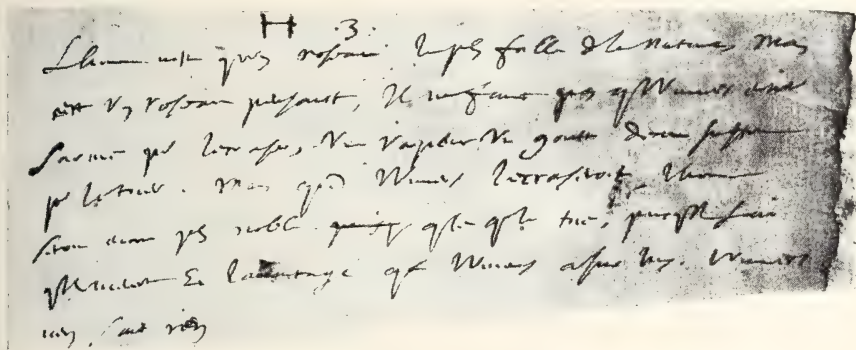 H .3.
Lhomme nest qun roseau le pl foible de la nature, Mais
cest un roseau pensant, Il ne faut pas q lVnivers entier
sarme pr lecraser, Vne vapeur Vne goutte deau suffit
pr le tuer. Mais qd lVnivers lecraseroit, lhome
seroit encor pls noble que ce q le tue, puisqil sait
qil meurt Et lauantage q lVnivers a sur luy. lVnivers
nen sait rien